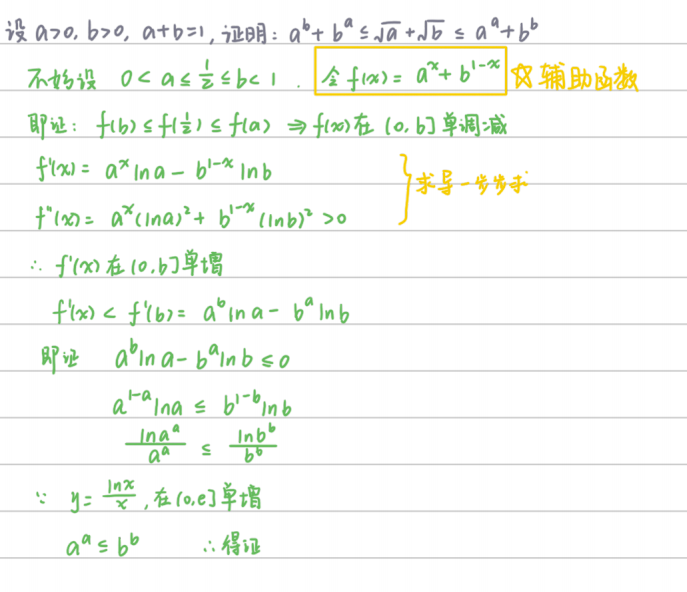 设 a>0, b>0, a+b=1, 证明: a^b + b^a ≤ √a + √b ≤ a^a + b^b
不妨设 0 < a ≤ 1/2 ≤ b < 1 . 令 f(x) = a^x + b^{1-x} ☆ 辅助函数
即证: f(b) ≤ f(1/2) ≤ f(a) ⇒ f(x) 在 (0, b] 单调减
f'(x) = a^x ln a - b^{1-x} ln b
求导一步步求
f''(x) = a^x (ln a)² + b^{1-x} (ln b)² > 0
∴ f'(x) 在 (0, b] 单增
f'(x) < f'(b) = a^b ln a - b^a ln b
即证 a^b ln a - b^a ln b ≤ 0
a^{1-a} ln a ≤ b^{1-b} ln b
ln a^a / a^a ≤ ln b^b / b^b
∵ y = ln x / x , 在 (0, e] 单增
a^a ≤ b^b ∴ 得证